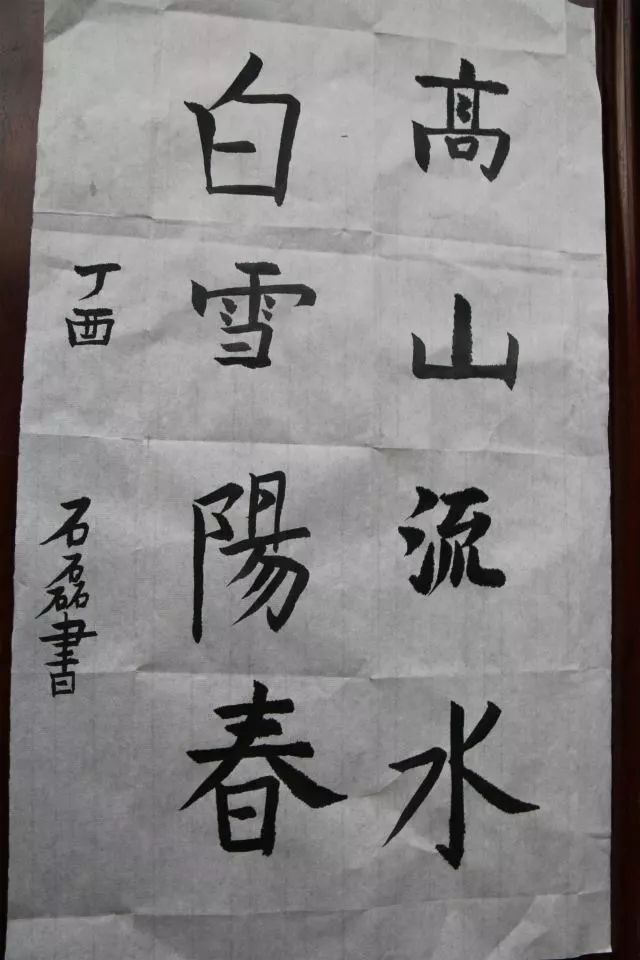 髙山流水
白雪陽春
丁酉
石磊書